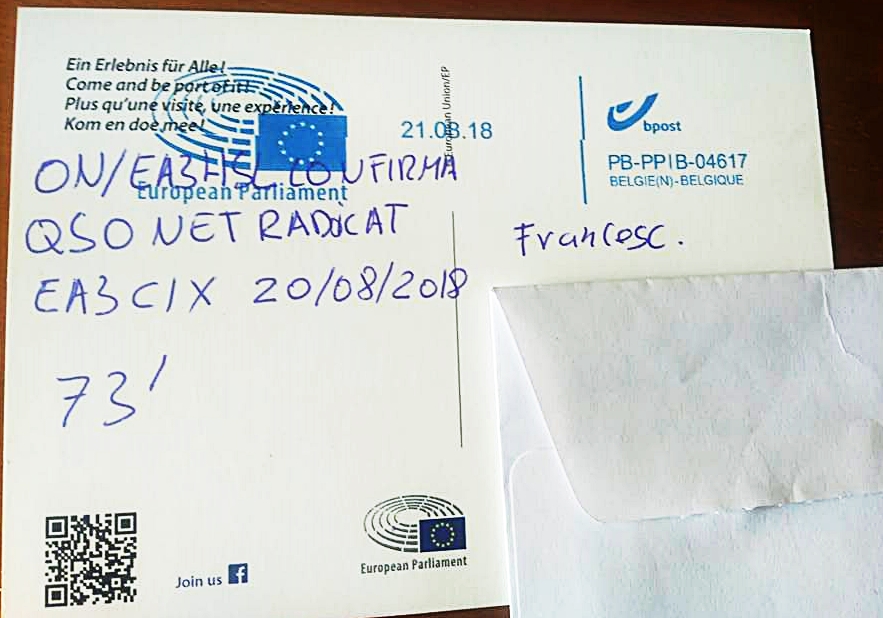 Ein Erlebnis für Alle!
Come and be part of it!
Plus qu'une visite, une expérience!
Kom en doe mee!
European Parliament
ON/EA3HSL CONFIRMA
QSO NET RADICAT
EA3CIX 20/08/2018
73'
European Union/EP
21.08.18
bpost
PB-PPIB-04617
BELGIE(N)-BELGIQUE
Francesc.
Join us
European Parliament